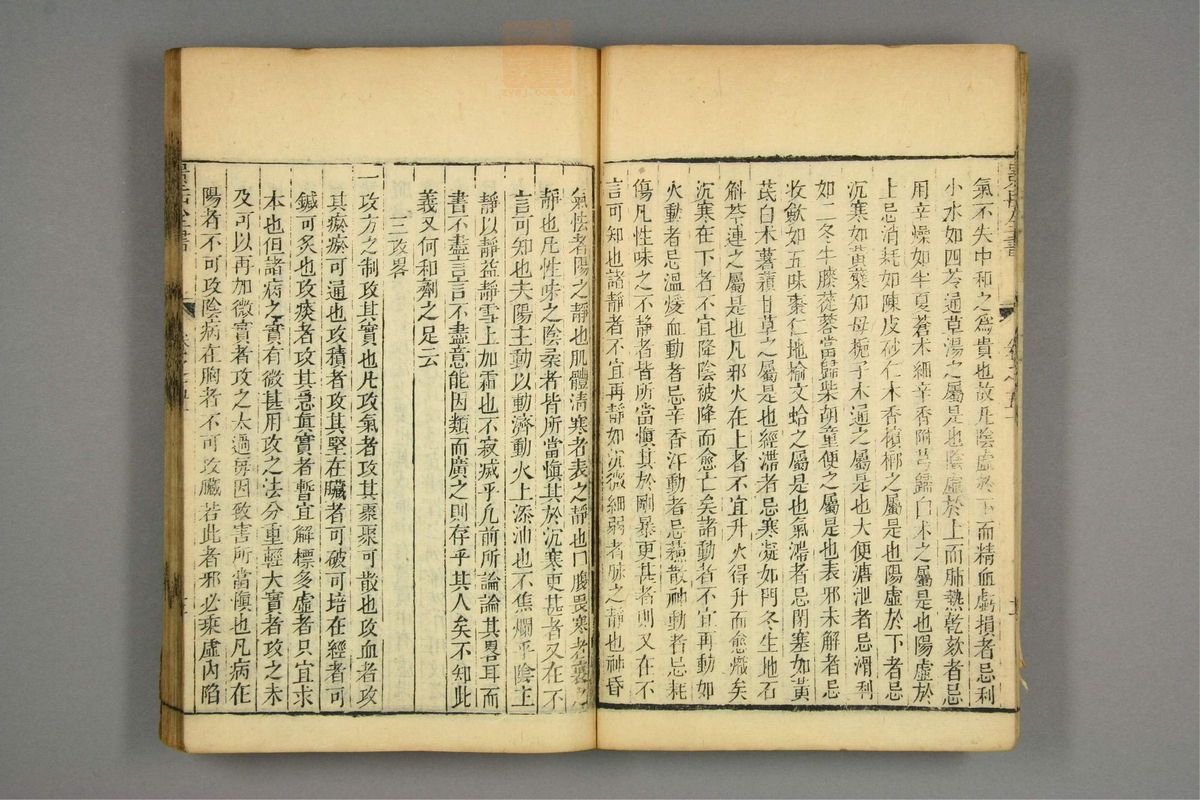 氣不失中和之為貴也故凡陰虛於下而精血虧損者忌利
小水如四苓通草湯之屬是也陰虛於上而肺熱乾欬者忌
用辛燥如半夏蒼朮細辛香附芎歸白朮之屬是也陽虛於
上忌消耗如陳皮砂仁木香檳榔之屬是也陽虛於下者忌
沉寒如黃蘗知母梔子木通之屬是也大便溏泄者忌滑利
如二冬牛膝蓯蓉當歸柴胡童便之屬是也表邪未解者忌
收歛如五味棗仁地榆文蛤之屬是也氣滯者忌閉塞如黃
芪白朮薯蕷甘草之屬是也經滯者忌寒凝如門冬生地石
斛芩連之屬是也凡邪火在上者不宜升火得升而愈熾矣
沉寒在下者不宜降陰被降而愈亡矣諸動者不宜再動如
火動者忌溫煖血動者忌辛香汗動者忌蘇散神動者忌耗
傷凡性味之不靜者皆所當慎其於剛暴更甚者則又在不
言可知也諸靜者不宜再靜如沉微細弱者脉之靜也神昏
氣怯者陽之靜也肌體清寒者表之靜也口腹畏寒者裏之
靜也凡性味之陰柔者皆所當慎其於沉寒更甚者又在不
言可知也夫陽主動以動濟動火上添油也不焦爛乎陰主
靜以靜益靜雪上加霜也不寂滅乎凡前所論論其畧耳而
書不盡言言不盡意能因類而廣之則存乎其人矣不知此
義又何和劑之足云
三攻畧
一攻方之制攻其實也凡攻氣者攻其聚聚可散也攻血者攻
其瘀瘀可通也攻積者攻其堅在臟者可破可培在經者可
鍼可灸也攻痰者攻其急真實者暫宜解標多虛者只宜求
本也但諸病之實有微甚用攻之法分重輕大實者攻之未
及可以再加微實者攻之太過每因致害所當慎也凡病在
陽者不可攻陰病在胸者不可攻臟若此者邪必乘虛內陷